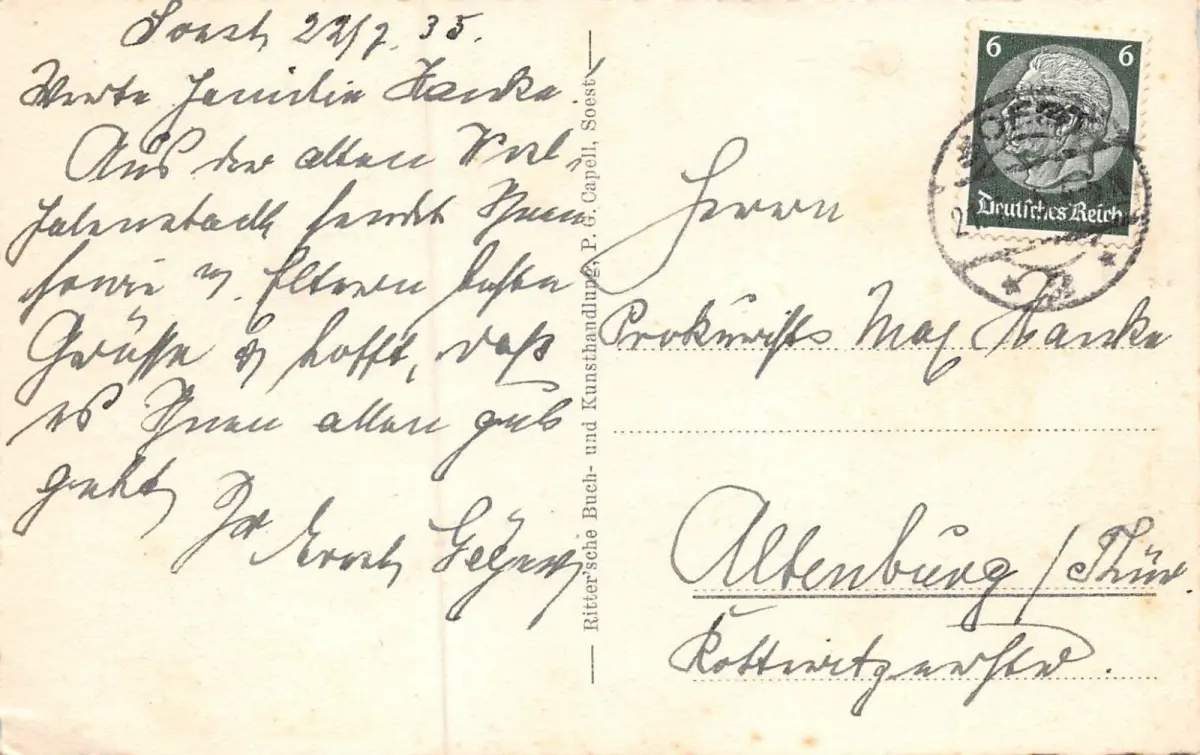 Soest, 22/7. 35.
Werte Familie Hanke.
Aus der alten West-
falenstadt sendet Ihnen
sowie u. Eltern beste
Grüsse & hofft, daß
es Ihnen allen gut
geht
Ihr
Ernst Geyer
Ritter'sche Buch- und Kunsthandlung, P. G. Capell, Soest
6 6
Deutsches Reich
SOEST
Herrn
Prokurist Max Hanke
Altenburg / Thür.